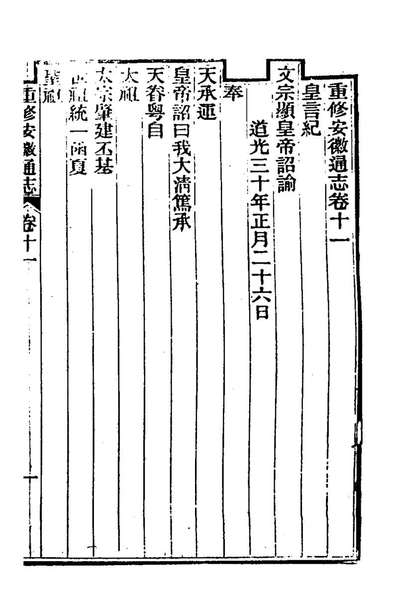 重修安徽通志卷十一
皇言紀
文宗顯皇帝詔諭
道光三十年正月二十六日
奉
天承運
皇帝詔曰我大淸篤承
天眷粤自
太祖
太宗肇建丕基
世祖統一函夏
聖祖
重修安徽通志 卷十一 一